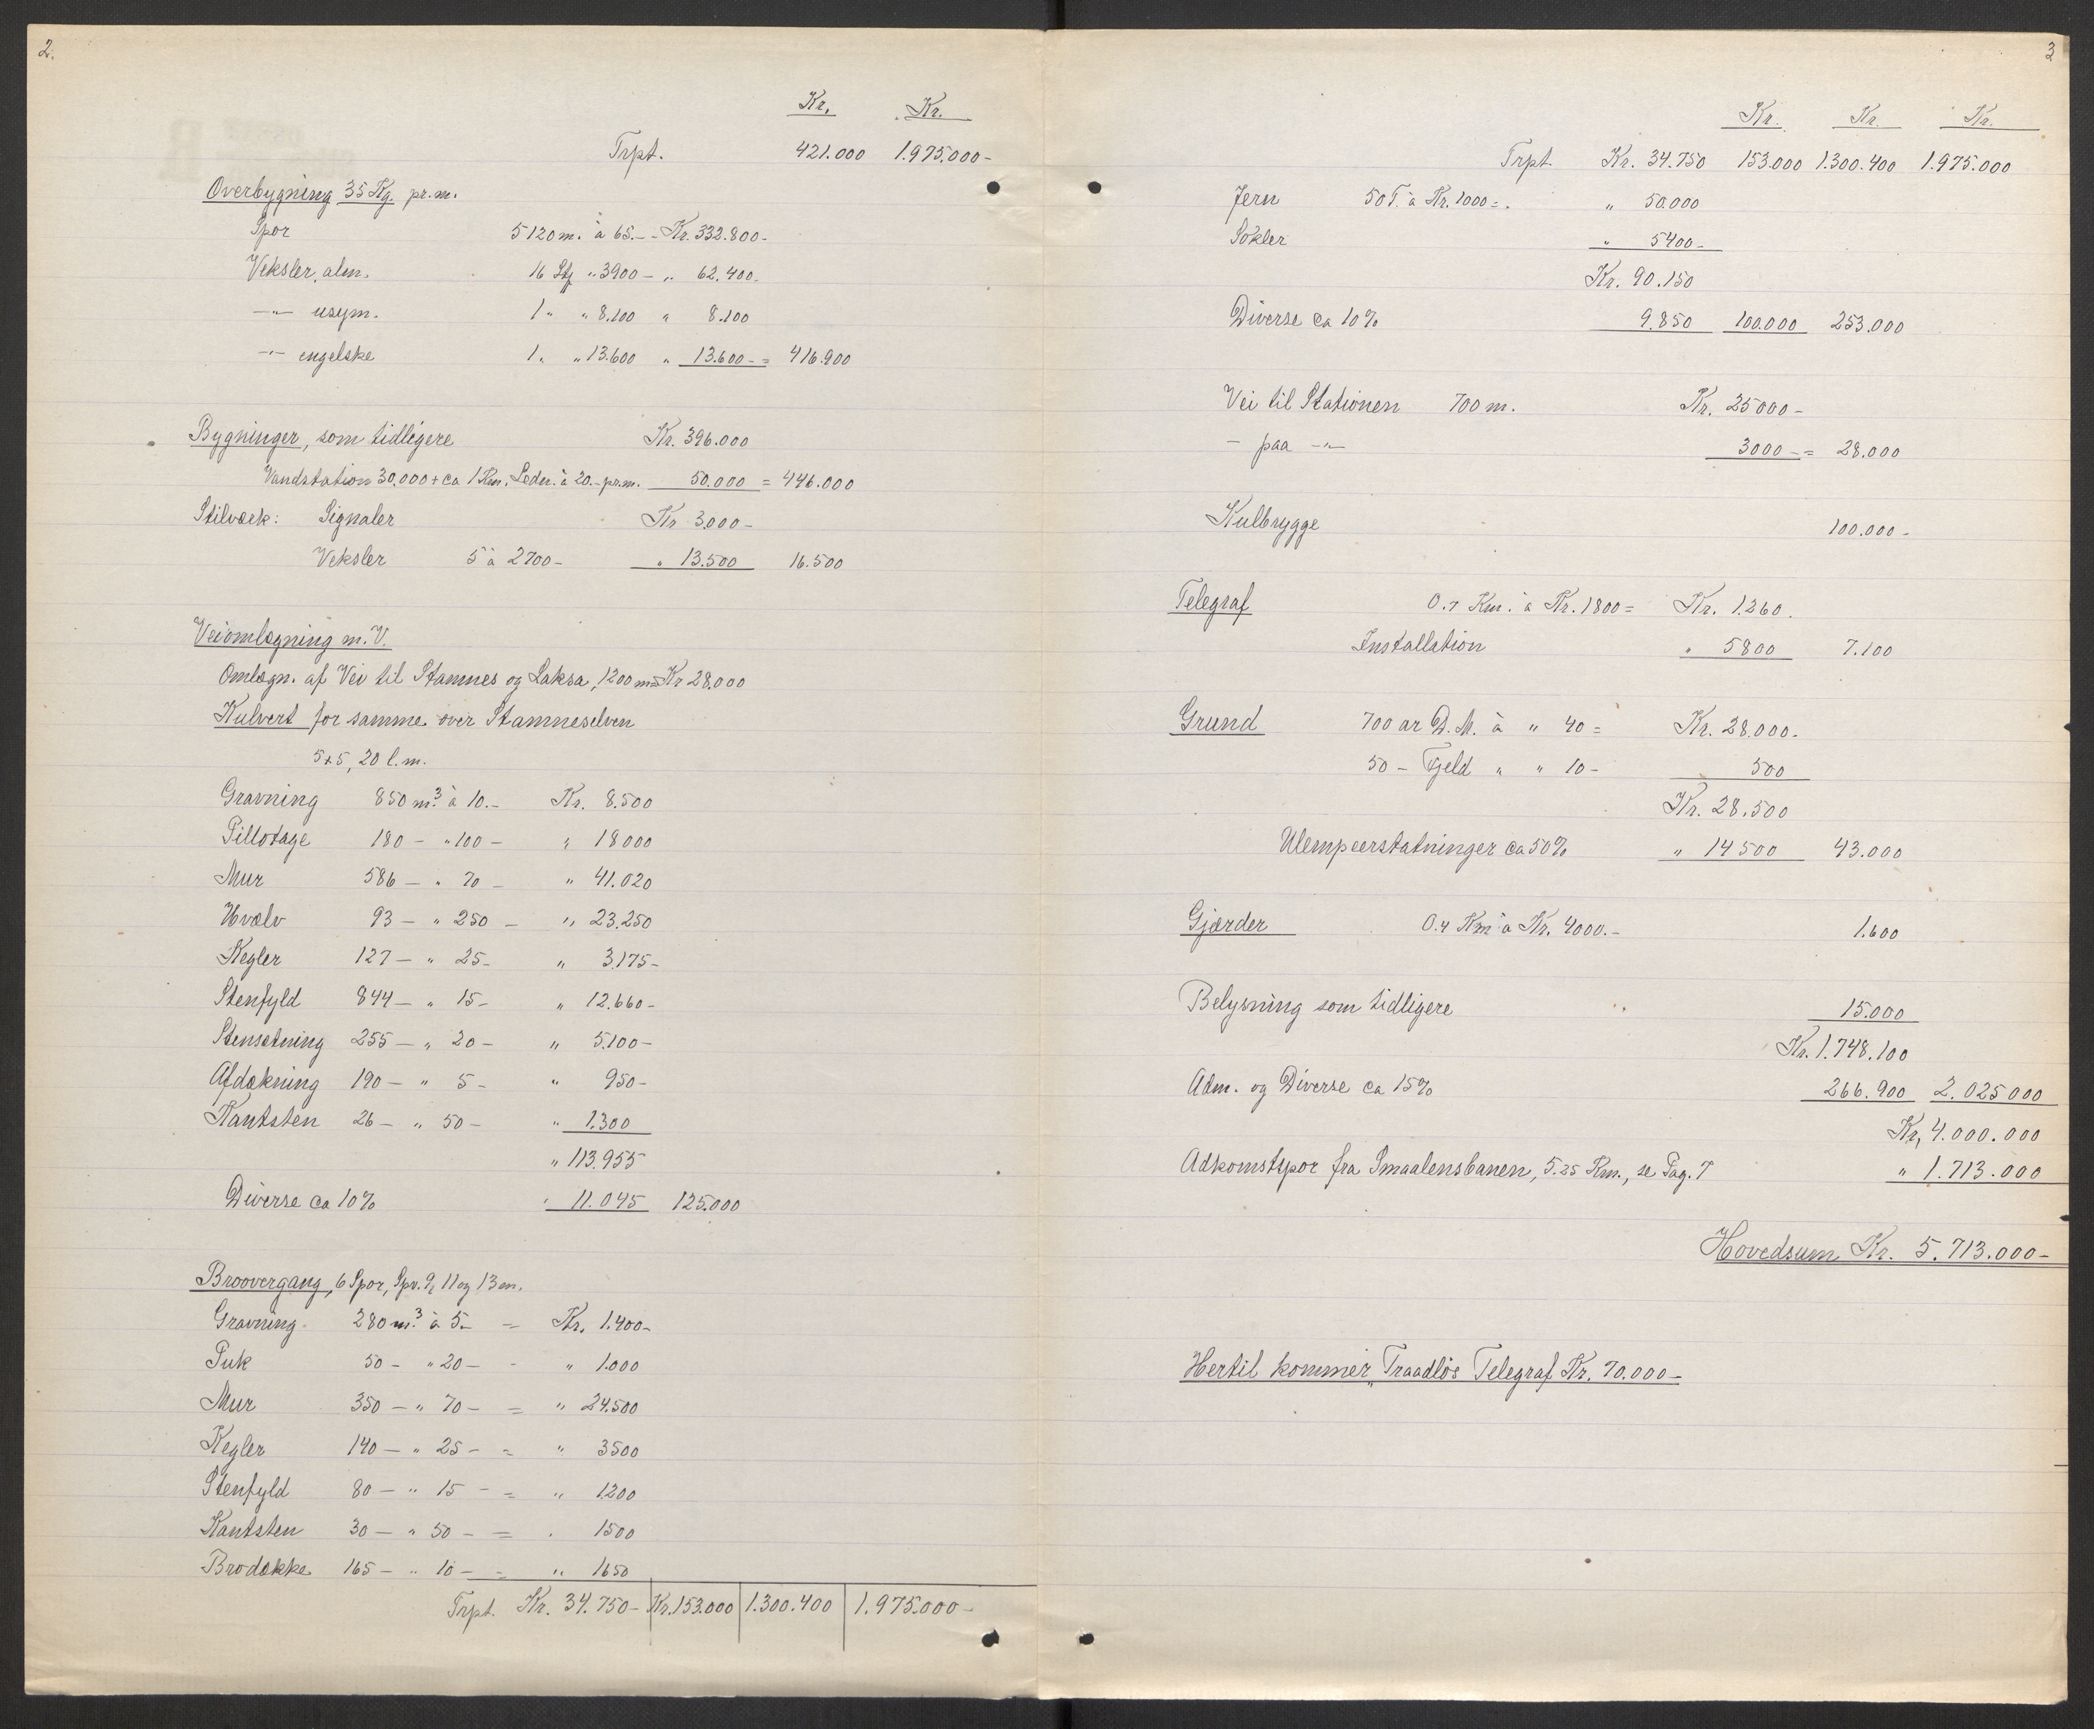 2.
Kr. Kr.
Trpt. 421.000 1.975.000-
Overbygning 35 Kg. pr. m.
Spor 5120 m. à 65.- - Kr. 332.800-
Veksler, alm. 16 Stk „ 3900 - „ 62.400.
-„- usym. 1 „ „ 8.100 „ 8.100
-„- engelske 1 „ „ 13.600 „ 13.600- = 416.900
Bygninger, som tidligere Kr. 396.000
Vandstation 30.000 + ca 1 Km. Ledn. à 20.- pr. m. 50.000 = 446.000
Stilværk: Signaler Kr 3.000-
Veksler 5 à 2700- „ 13.500 16.500
Veiomlægning m. V.
Omlægn. af Vei til Stamnes og Laksa, 1200 m = Kr 28.000
Kulvert for samme over Stamneselven
5+5, 20 l. m.
Gravning 850 m.³ à 10.- Kr. 8.500
Pillotage 180 - „ 100 - „ 18000
Mur 586 - „ 70 - „ 41.020
Hvælv 93 - „ 250 - „ 23.250
Kegler 127 - „ 25 - „ 3.175-
Stenfyld 844 - „ 15 - „ 12.660-
Stensætning 255 - „ 20 - „ 5.100-
Afdækning 190 - „ 5 - „ 950-
Kantsten 26 - „ 50 - „ 1.300
„ 113.955
Diverse ca 10% „ 11.045 125.000
Broovergang, 6 Spor, Spv. 9, 11 og 13 m.
Gravning 280 m.³ à 5.- = Kr. 1.400-
Puk 50 - „ 20 - - „ 1.000
Mur 350 - „ 70 - = „ 24.500
Kegler 140 - „ 25 - = „ 3500
Stenfyld 80 - „ 15 - = „ 1200
Kantsten 30 - „ 50 - = „ 1500
Brodække 165 - „ 10 - = „ 1650
Trpt. Kr. 34.750- Kr. 153.000 1.300.400 1.975.000-
3
Kr. Kr. Kr.
Trpt. Kr. 34.750 153.000 1.300.400 1.975.000
Jern 50 T. à Kr. 1000 =. „ 50.000
Sokler „ 5400-
Kr. 90.150
Diverse ca 10% 9.850 100.000 253.000
Vei til Stationen 700 m. Kr. 25000-
- paa -„- 3000- = 28.000
Kulbrygge 100.000-
Telegraf 0.7 Km. à Kr. 1800 = Kr. 1.260.
Installation „ 5800 7.100
Grund 700 ar D. M. à „ 40 = Kr. 28.000-
50 - Fjeld „ „ 10 - 500
Kr. 28.500
Ulempeerstatninger ca 50% „ 14500 43.000
Gjærder 0.4 Km à Kr. 4000.- 1.600
Belysning som tidligere 15.000
Kr. 1.748.100
Adm. og Diverse ca 15% 266.900 2.025000
Kr, 4.000.000
Adkomstspor fra Smaalensbanen, 5.25 Km., se Pag. 7 „ 1.713.000
Hovedsum Kr. 5.713.000-
Hertil kommer „Traadløs Telegraf Kr. 70.000-